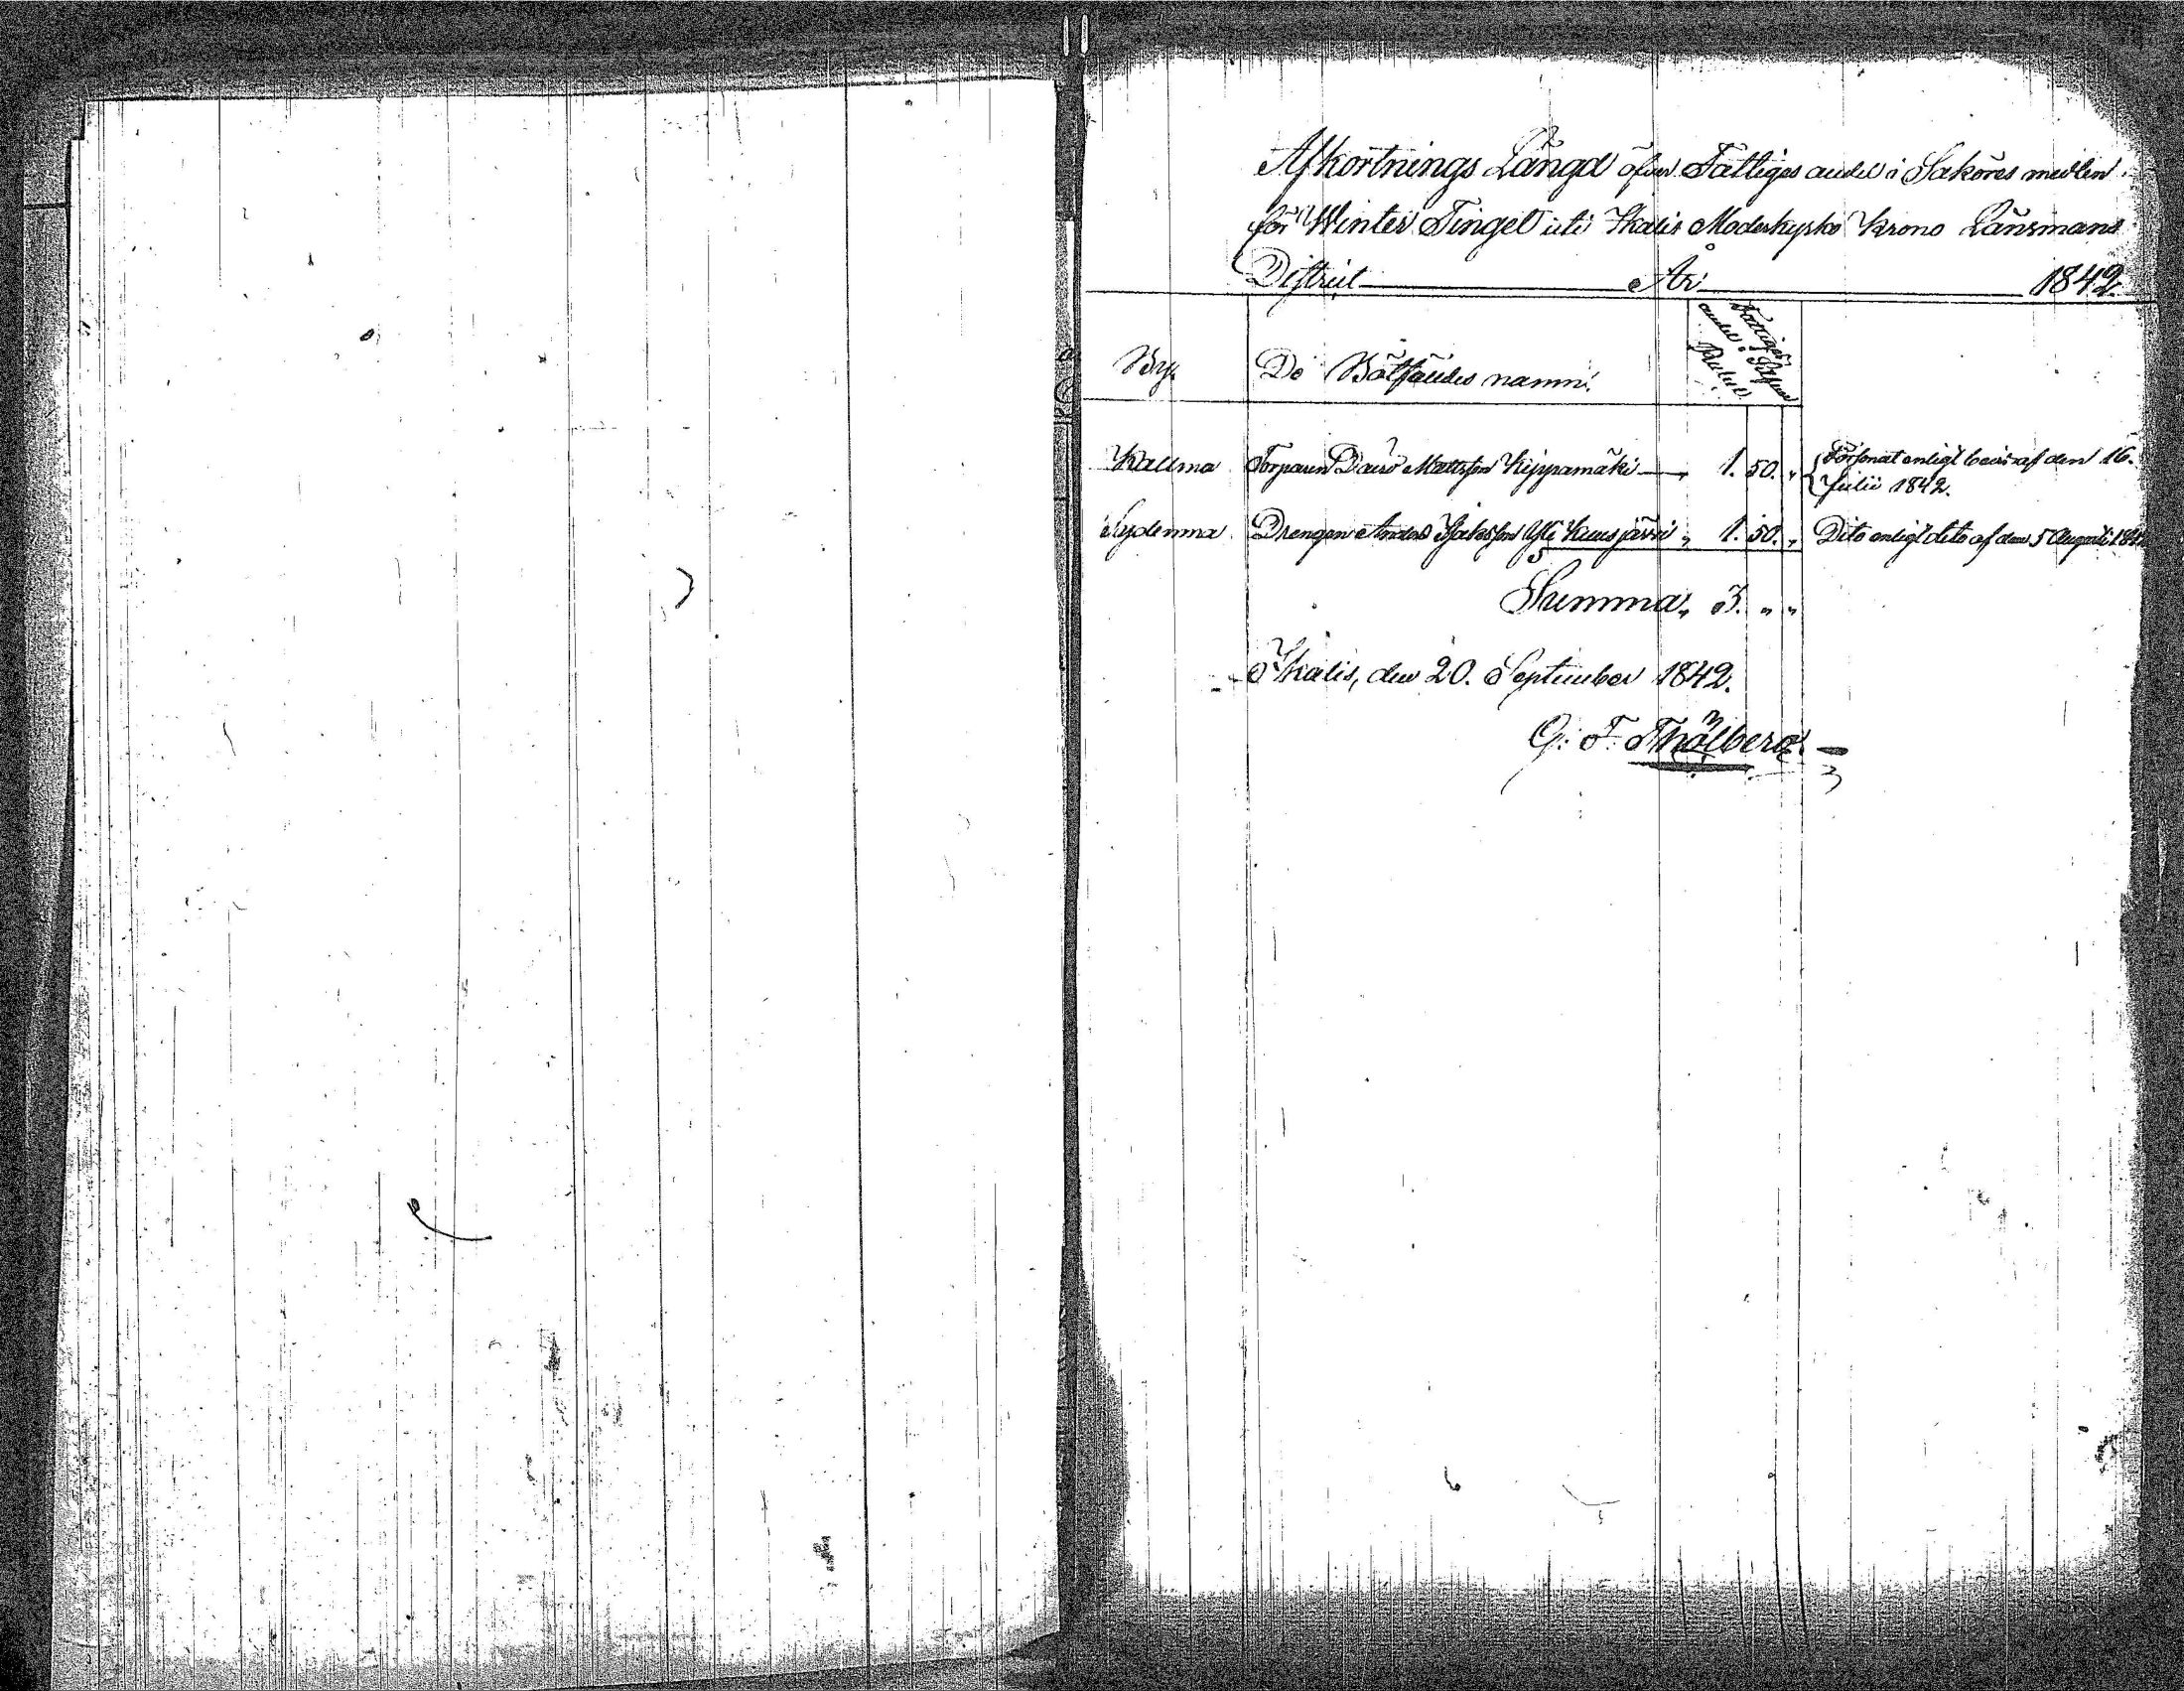 Afkortnings Längd öfver Fattiges andel i Saköres medlen
för Winter Tinget uti Ikalis Moderkyrko Krono Länsmans
District År 1842.
By. De Bötfäldes namn. Fattiges andel i Silfver Rubel.
Kauma Torparen David Mattsson Kippamäki 1. 50. „ Försonat enligt bevis af den 16.
Julii 1842.
Sydenma Drengen Anders Jakobsson Yli Kuusjärvi „ 1. 50. „ Dito enligt dito af den 5 Augusti 1842
Summa „ 3. „ „
Ikalis, den 20. September 1842.
G. F. Thölberg